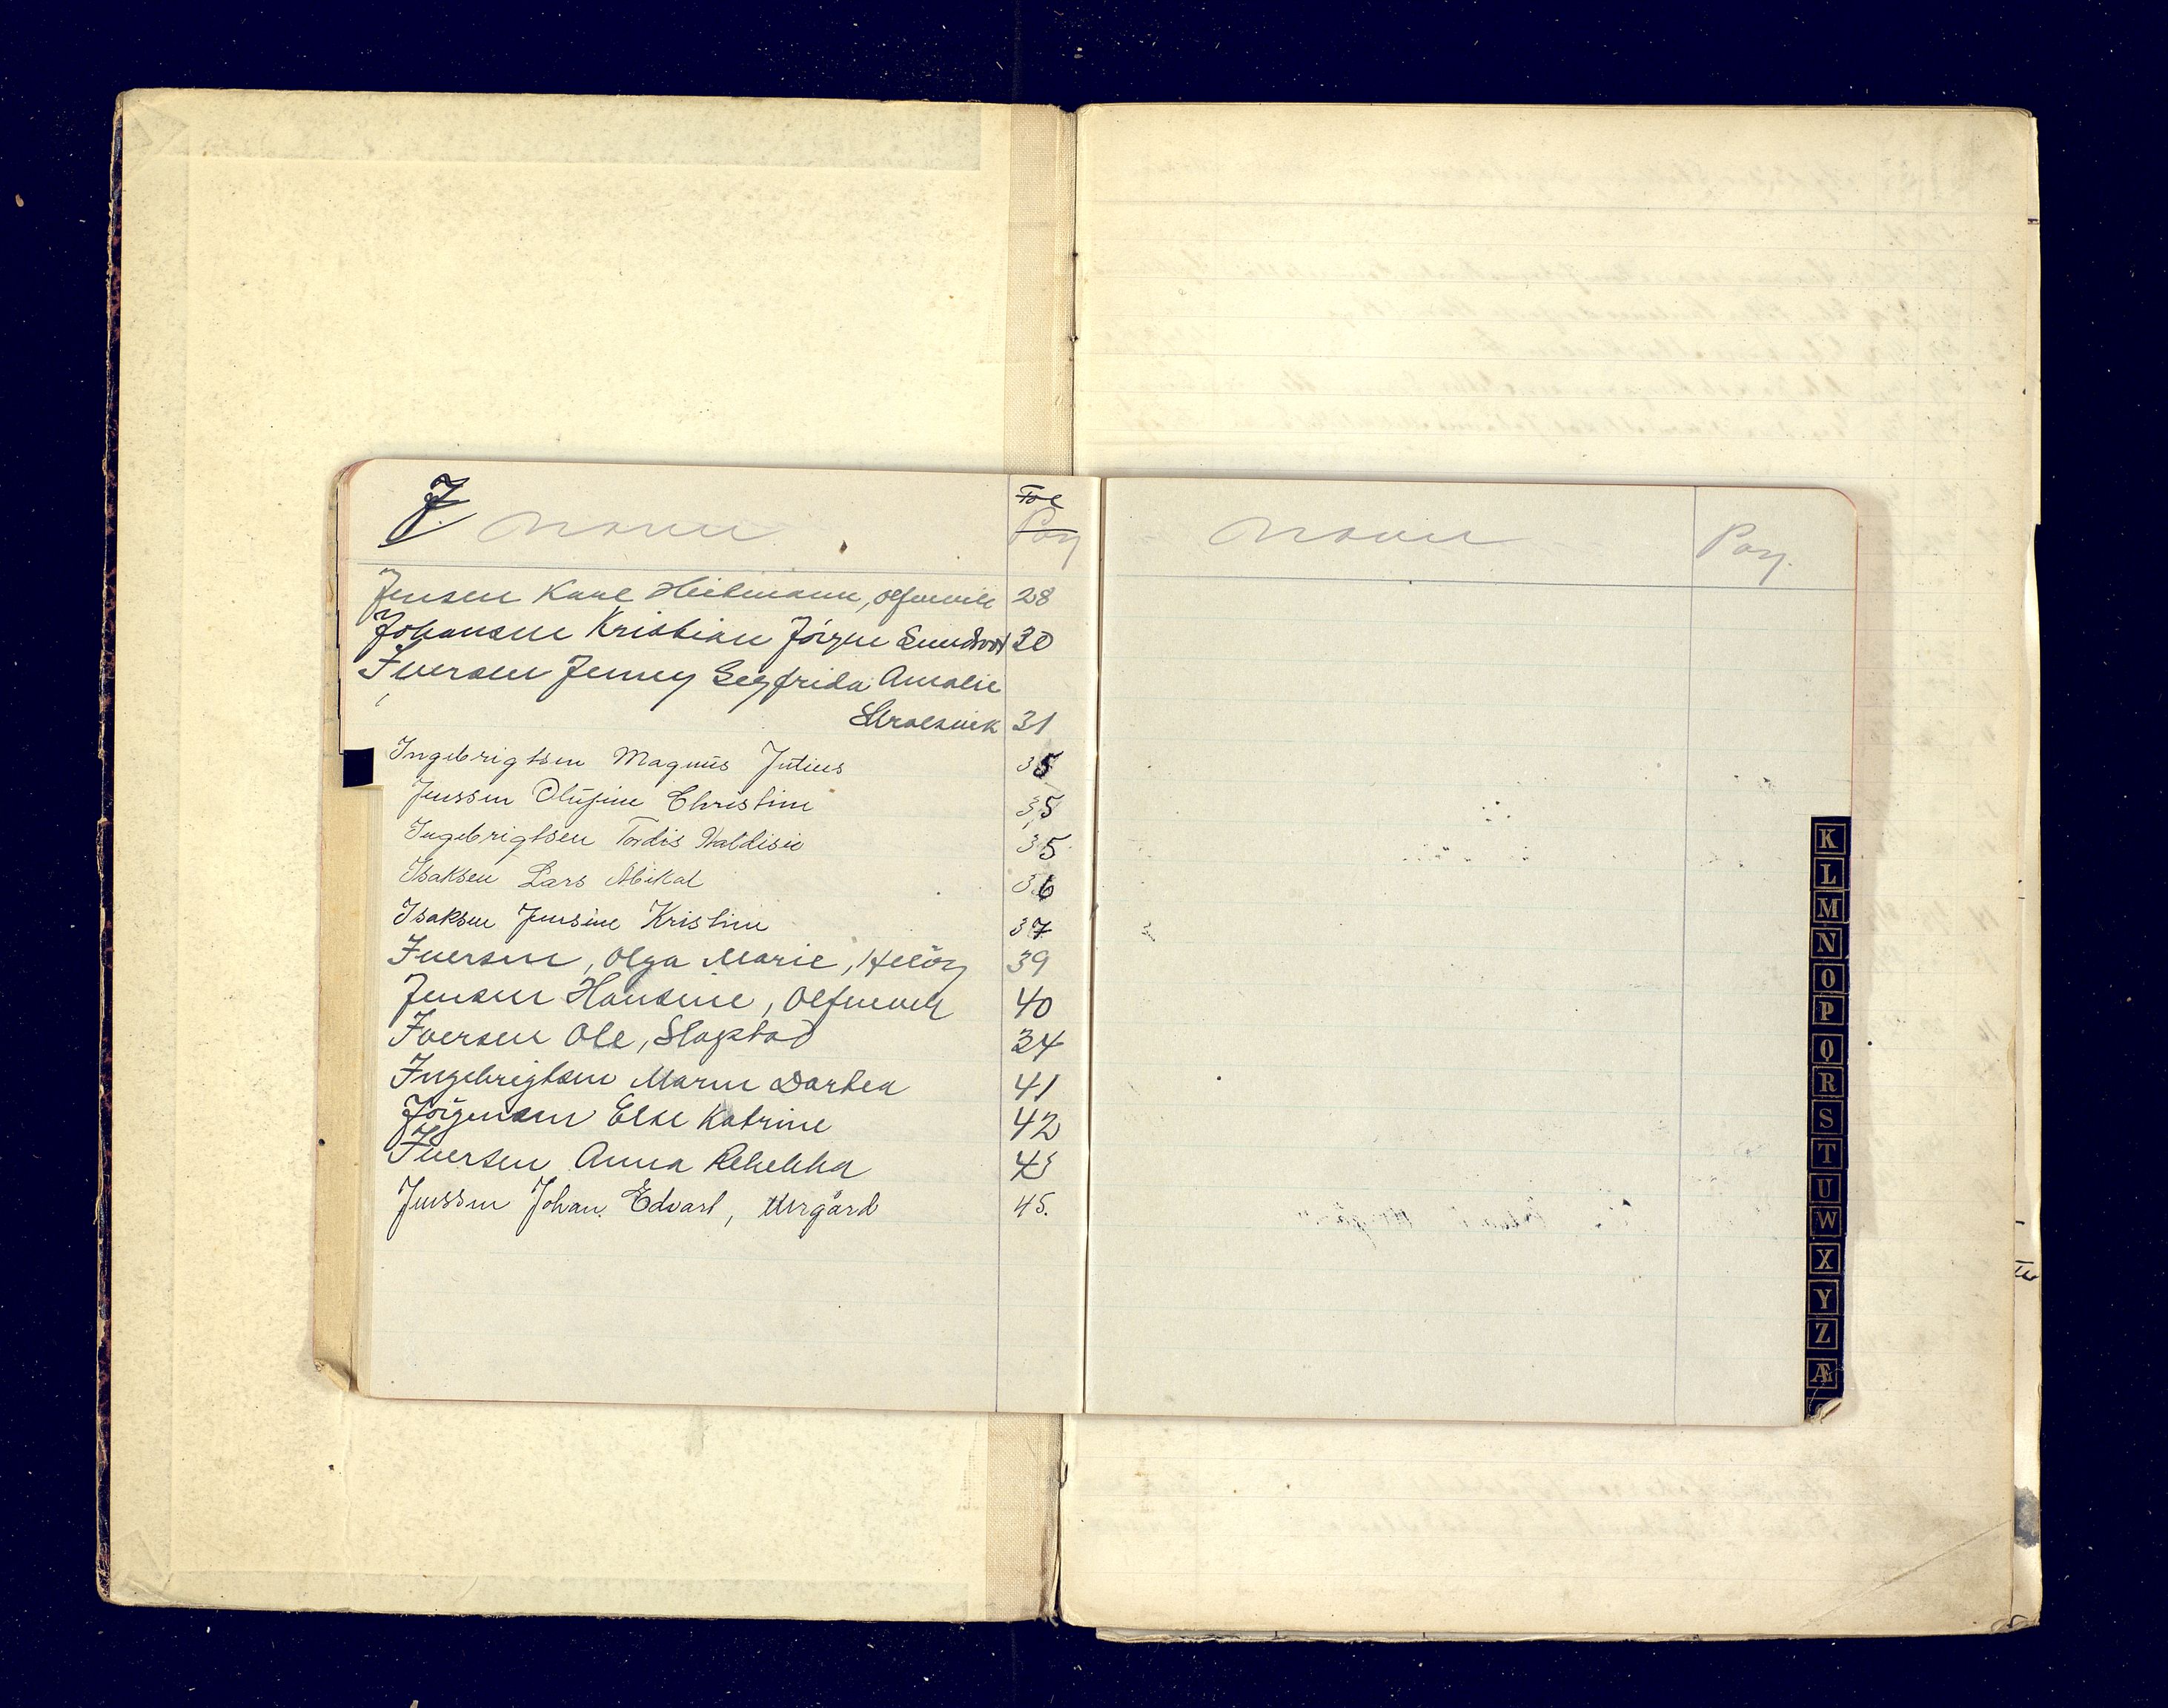 J. Navn Fol Pag
Jensen Karl Heitmann, Olfurvik 28
Johansen Kristian Jörgen Sundvold 30
Iversen Jenny Segfrida Amalie
31
Ingebrigtsen Magnus Julius 35
Jenssen Olufine Christine 35
Ingebrigtsen Tordis Haldisie 35
Isaksen Lars Mikal 36
Isaksen Jensine Kristine 37
Iversen, Olga Marie, 39
Jensen Hansine, 40
Iversen Ole, Slagstad 34
Ingebrigtsen Maren Dortea 41
Jörgensen Else Katrine 42
Iversen Anna Rebekka 43
Jenssen Johan Edvart, Ursgård 45.
Navn Pag.
K
L
M
N
O
P
Q
R
S
T
U
W
X
Y
Z
Æ